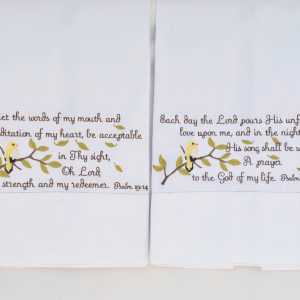 et the words of my mouth and
ditation of my heart, be acceptable
in Thy sight,
Oh Lord
strength and my redeemer. Psalm 19:14
Each day the Lord pours His unf
love upon me, and in the night
His song shall be w
A prayer
to the God of my life. Psalm